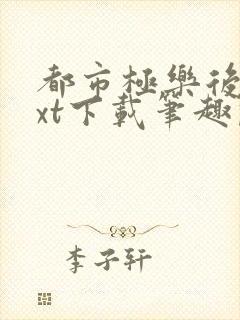 都市極樂後
xt下載筆趣
李子轩